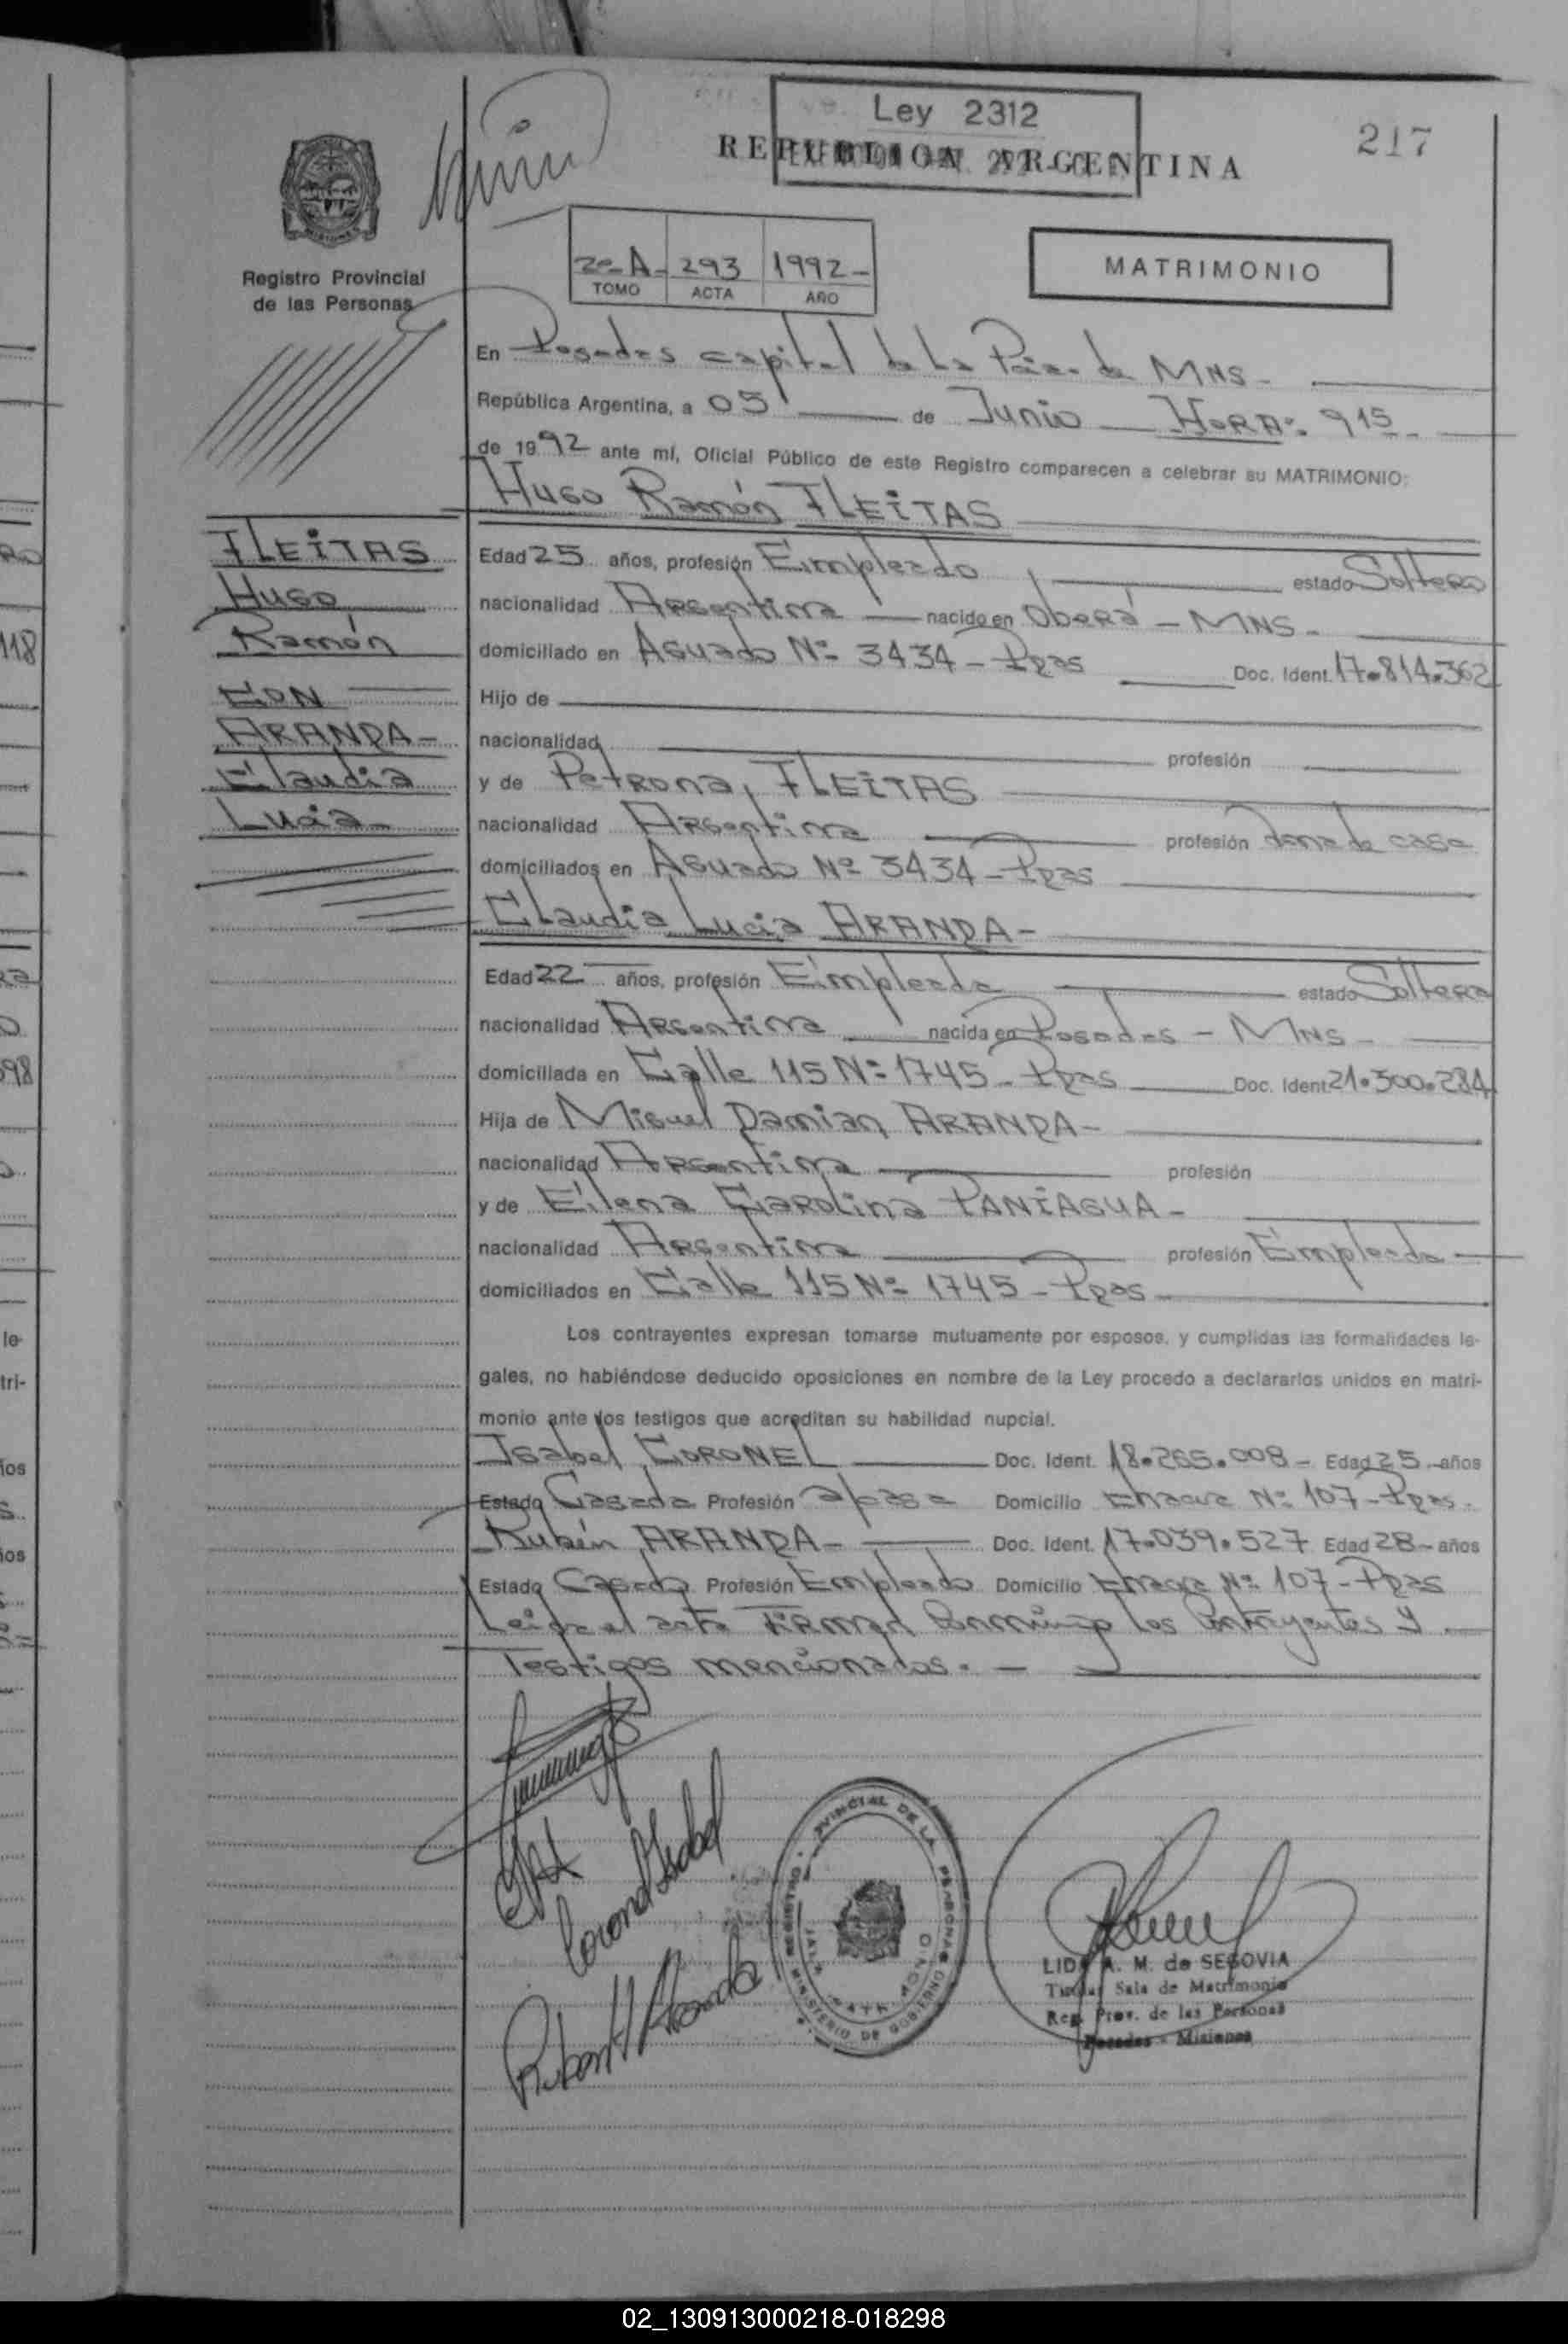 Ley 2312
217
REPUBLICA ARGENTINA
MISIONES
Registro Provincial
de las Personas
2º A - 293 1992 -
TOMO ACTA AÑO
MATRIMONIO
En Posadas capital de la Pcia. de MNS -
República Argentina, a 05 de Junio HORA: 915 -
de 1992 ante mí, Oficial Público de este Registro comparecen a celebrar su MATRIMONIO:
Hugo Ramón FLEITAS
FLEITAS
Hugo
Ramón
CON
ARANDA -
Claudia
Lucia -
Edad 25 años, profesión Empleado estado Soltero
nacionalidad Argentina nacido en Oberá - MNS -
domiciliado en Aguado Nº 3434 - Pdas Doc. Ident. 17.814.362
Hijo de
nacionalidad profesión
y de Petrona, FLEITAS
nacionalidad Argentina profesión ama de casa
domiciliados en Aguado Nº 3434 - Pdas
Claudia Lucia ARANDA -
Edad 22 años, profesión Empleada estado Soltera
nacionalidad Argentina nacida en Posadas - MNS -
domiciliada en Calle 115 Nº 1745 - Pdas Doc. Ident 21.300.284
Hija de Miguel Damian ARANDA -
nacionalidad Argentina profesión
y de Elena Carolina PANIAGUA -
nacionalidad Argentina profesión Empleada
domiciliados en Calle 115 Nº 1745 - Pdas -
Los contrayentes expresan tomarse mutuamente por esposos, y cumplidas las formalidades le-
gales, no habiéndose deducido oposiciones en nombre de la Ley procedo a declararlos unidos en matri-
monio ante los testigos que acreditan su habilidad nupcial.
Isabel CORONEL Doc. Ident. 18.265.008 - Edad 25 - años
Estado Casada Profesión Domicilio Nº 107 - Pdas -
Rubén ARANDA - Doc. Ident. 17.039.527 Edad 28 - años
Estado Casado Profesión Empleado Domicilio Nº 107 - Pdas
Leida el acta Firman Conmigo los Contrayentes y
Testigos mencionados. -
Coronel Isabel
Ruben H Aranda
REGISTRO PROVINCIAL DE LA PERSONAS
MINISTERIO DE GOBIERNO
LIDA A. M. de SEGOVIA
Titular Sala de Matrimonio
Reg. Prov. de las Personas
Posadas - Misiones
02_130913000218-018298